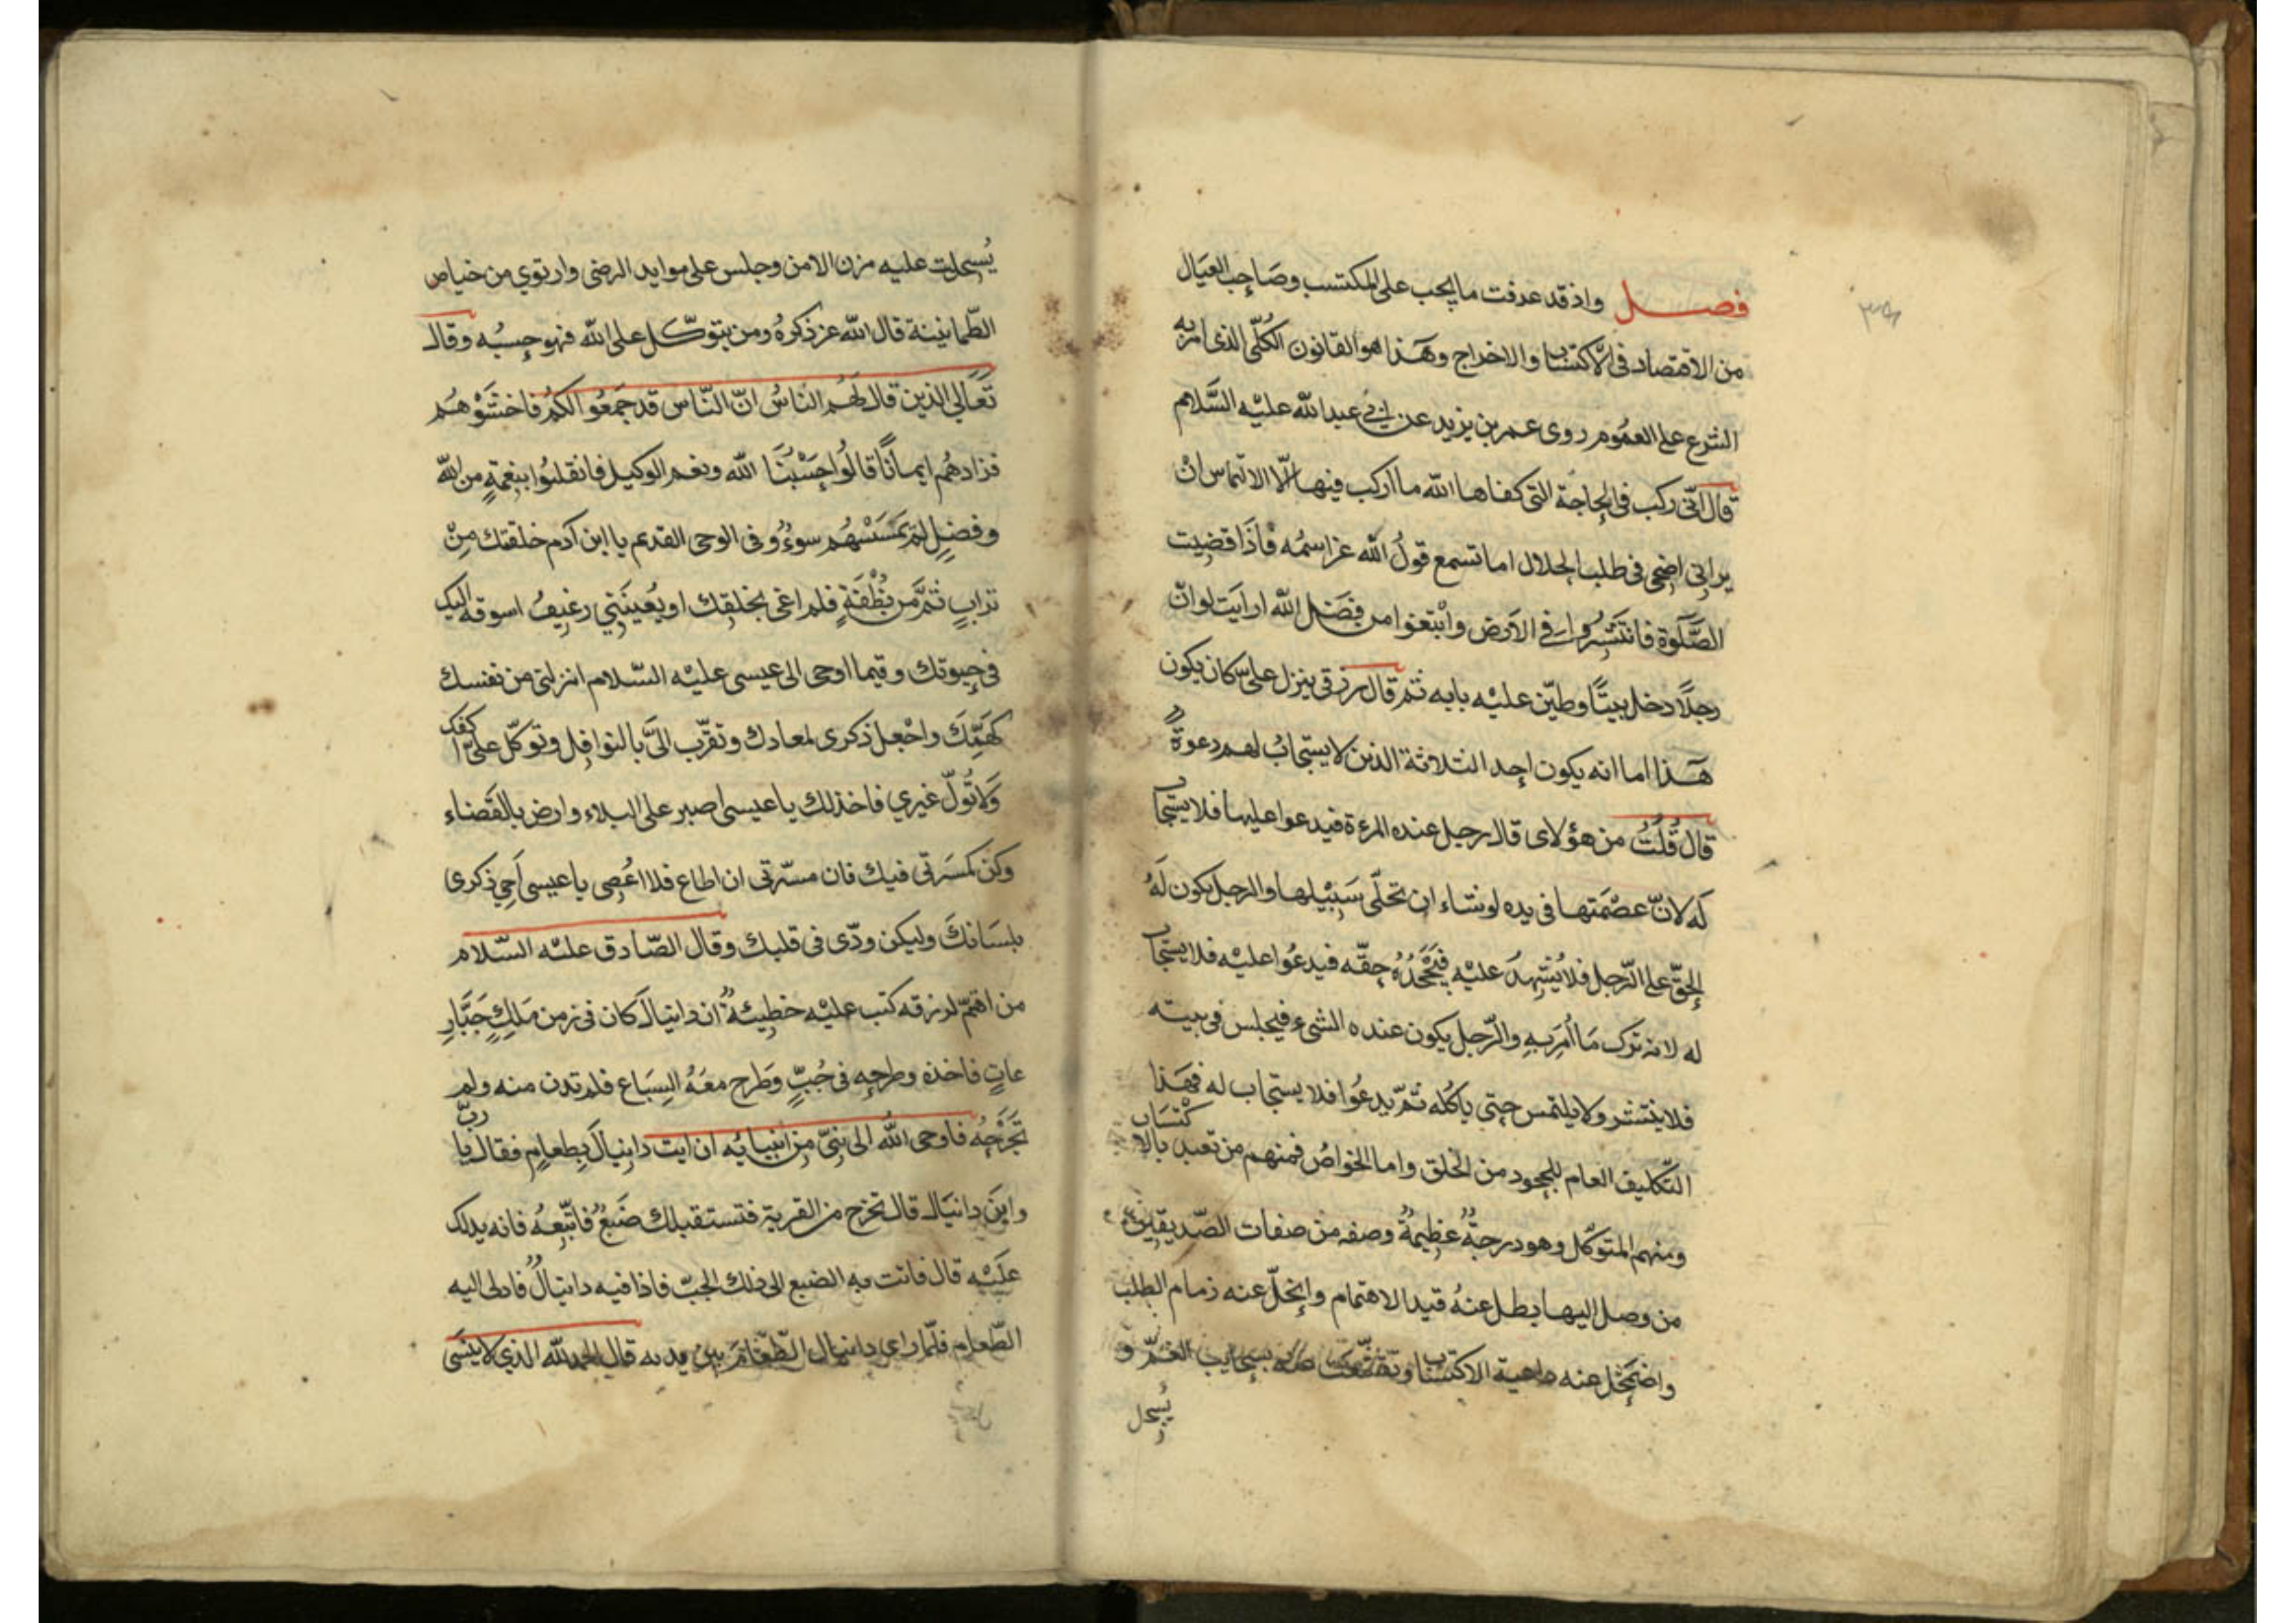 فصل واذ قد عرفت ما يجب على المكتسب وصَاحب العيَال
من الاقتصاد فى الاكتساب والاخراج وهَذا هو القانون الكُلّى الذى امر به
الشرع على العمُوم روى عمر بن يزيد عن ابى عبد الله عليْه السَّلام
قال انّى ركب فى الحاجة التى كفاها الله ما اركب فيها الّا الالتماس انْ
يرانى اضحى فى طلب الحلال اما تسمع قولُ الله عز اسمُه فاذَا قضيت
الصَّلوة فانتَشِرُوا فى الارض وابْتغوا من فضَل الله ارايَت لو انّ
رجلًا دخل بيتًا وطيّن عليْه بابه ثم قال رزقى ينزل علىّ كان يكون
هَذا اما انه يكون احد الثلاثة الذين لا يستجابُ لهم دعوةٌ
قال قُلتُ من هؤلاى قال رجل عنده المرءة فيدعوا عليها فلا يستجاب
لَه لانّ عصْمَتها فى يده لو نشاء ان تخلّى سَبيْلها والرجل يكون لَهُ
الحقّ على الرّجل فلا يُشهدَ عليْه فيَجْحَدُهُ حقّه فيدعُوا عليْه فلا يستجاب
له لانه ترك مَا اُمِرَ بهِ والرّجل يكون عنده الشىء فيجلس فى بيته
فلا ينتشر ولا يلتمس حتى ياكُله ثم يدعُوا فلا يستجاب له فهَذا
التّكليف العام للجهود من الخلق واما الخواصُ فمنهم من تعبد بالاكْتسَاب
ومنهم المتوكّل وهو درجةٌ عظيمةٌ وصفه من صفات الصّديقين
من وصل اليها بطل عنهُ قيد الاهتمام وانحلّ عنه زمام الطلب
واضمَحل عنه داعية الاكتساب وتقشّعت عنه سحايب الغمّ و
يُسجل
يُسجلت عليه مزن الامن وجلس على موايد الرضى وارتوي من خياص
الطّمانينة قال الله عز ذكرهُ ومن يتوكّل على الله فهو حسبُه وقال
تعَالى الذين قال لَهُم الناسُ انّ النّاس قد جمَعُوا لكُم فاخشَوْهُم
فزادهُم ايمانًا قالُوا حَسْبُنَا الله ونعم الوكيل فانقلبُوا بنعْمةٍ من الله
وفضلٍ لَم يَمسَسْهُم سوءٌ وفى الوحى القديم يا ابن آدم خلقتك مِنْ
ترابٍ ثمَّ من نُطْفَةٍ فلم اعى بخلقِك او يُعيننِي رغيفٌ اسوقه اليك
فى حيوتك وفيما اوحى الى عيسى عليْه السّلام انزلنى من نفسك
كهَمِّكَ واجْعل ذكرى لمعادك وتقرّب الىَّ بالنوافِل وتوكّل علىّ اكفك
وَلا تُوَلّ غيري فاخذلك يا عيسى اصبر على البلاء وارض بالقَضاء
وكن كمسَرتى فيك فان مسّرتى ان اطاع فلا اعْصى يا عيسى اَحي ذكرى
بلسَانكَ وليكن ودّى فى قلبك وقال الصّادق عليْه السّلام
من اهتمّ لرزقه كتب عليْه خطيئةٌ ان دانيالَ كان فى زمن مَلِكٍ جَبَّارٍ
عاتٍ فاخذه وطرحه فى جُبٍّ وَطَرح معَهُ السِبَاع فلم تدن منه ولم
تَجرَحهُ فاوحى الله الى نبىّ من انبيايه ان ايت دانيالَ بطعامٍ فقال يا ربّ
واينَ دانيَال قال تخرج من القرية فتستقبلك ضَبعٌ فاتّبعهُ فانه يدلك
عليْه قال فاتت به الضبع الى ذلك الجبّ فاذا فيه دانيالُ فادلى اليه
الطّعام فلمّا راى دانيال الطّعَامَ بين يديه قال الحمد لله الذي لا ينسَى